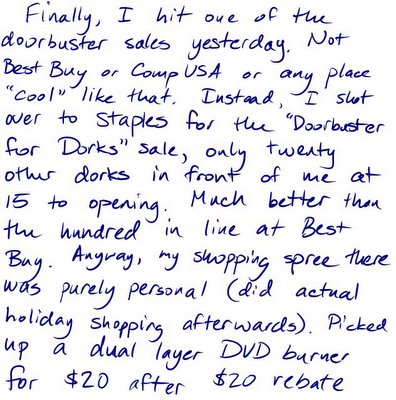 Finally, I hit one of the
doorbuster sales yesterday. Not
Best Buy or CompUSA or any place
"cool" like that. Instead, I shot
over to Staples for the "Doorbuster
for Dorks" sale, only twenty
other dorks in front of me at
15 to opening. Much better than
the hundred in line at Best
Buy. Anyway, my shopping spree there
was purely personal (did actual
holiday shopping afterwards). Picked
up a dual layer DVD burner
for $20 after $20 rebate